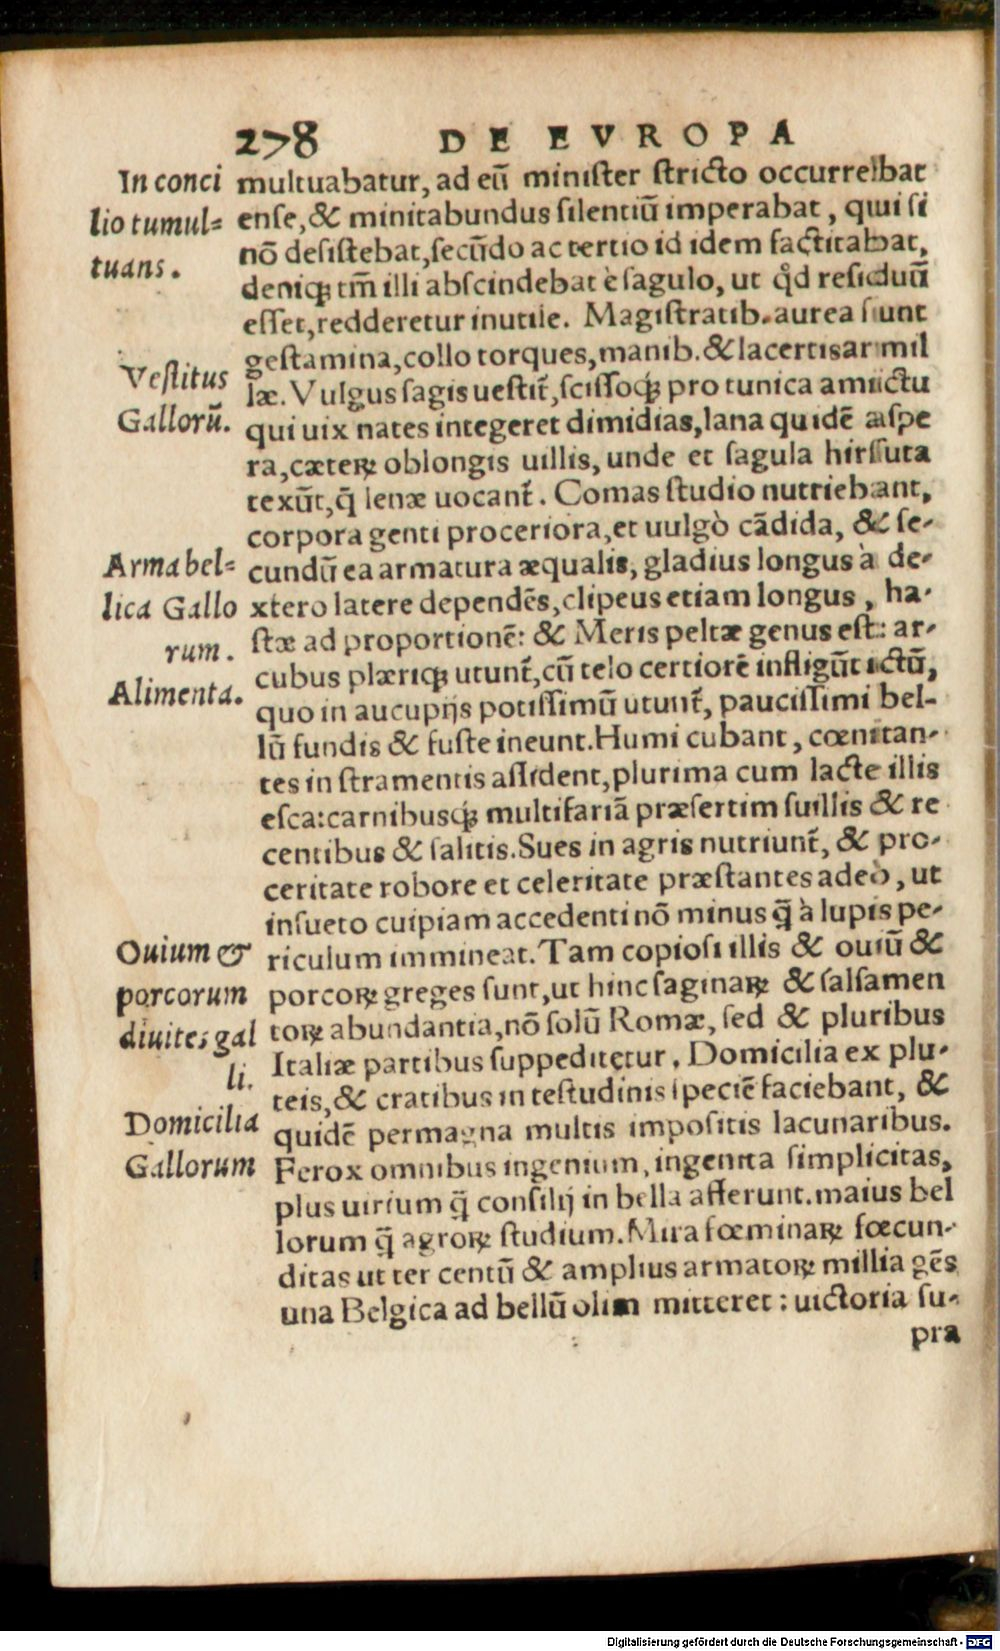 278 DE EVROPA
In conci
lio tumul=
tuans.
multuabatur, ad eũ minister stricto occurrebat
ense, & minitabundus silentiũ imperabat, qui si
nõ desistebat, secũdo ac tertio id idem factitabat,
deniqꝫ tm̃ illi abscindebat è sagulo, ut qd̃ residuũ
esset, redderetur inutile. Magistratib. aurea sunt
gestamina, collo torques, manib. & lacertis armil
læ. Vulgus sagis uestit̃, scissoqꝫ pro tunica amictu
qui uix nates integeret dimidias, lana quidẽ aspe
ra, cæteꝝ oblongis uillis, unde et sagula hirsuta
texũt, q̃ lenæ uocant̃. Comas studio nutriebant,
corpora genti proceriora, et uulgò cãdida, & se-
cundũ ea armatura æqualis, gladius longus à de-
xtero latere dependẽs, clipeus etiam longus, ha-
stæ ad proportionẽ: & Meris peltæ genus est: ar-
cubus plæriqꝫ utunt̃, cũ telo certiorẽ infligũt ictũ,
quo in aucupijs potissimũ utunt̃, paucissimi bel-
lũ fundis & fuste ineunt. Humi cubant, cœnitan-
tes in stramentis assident, plurima cum lacte illis
esca: carnibusqꝫ multifariã præsertim suillis & re
centibus & salitis. Sues in agris nutriunt̃, & pro-
ceritate robore et celeritate præstantes adeò, ut
insueto cuipiam accedenti nõ minus q̃ à lupis pe-
riculum immineat. Tam copiosi illis & ouiũ &
porcoꝝ greges sunt, ut hinc saginaꝝ & salsamen
toꝝ abundantia, nõ solũ Romæ, sed & pluribus
Italiæ partibus suppeditetur. Domicilia ex plu-
teis, & cratibus in testudinis speciẽ faciebant, &
quidẽ permagna multis impositis lacunaribus.
Ferox omnibus ingenium, ingenita simplicitas,
plus uirium q̃ consilij in bella afferunt. maius bel
lorum q̃ agroꝝ studium. Mira fœminaꝝ fœcun-
ditas ut ter centũ & amplius armatoꝝ millia gẽs
una Belgica ad bellũ olim mitteret: uictoria su-
pra
Vestitus
Gallorũ.
Arma bel=
lica Gallo
rum.
Alimenta.
Ouium &
porcorum
diuites gal
li.
Domicilia
Gallorum
Digitalisierung gefördert durch die Deutsche Forschungsgemeinschaft - DFG